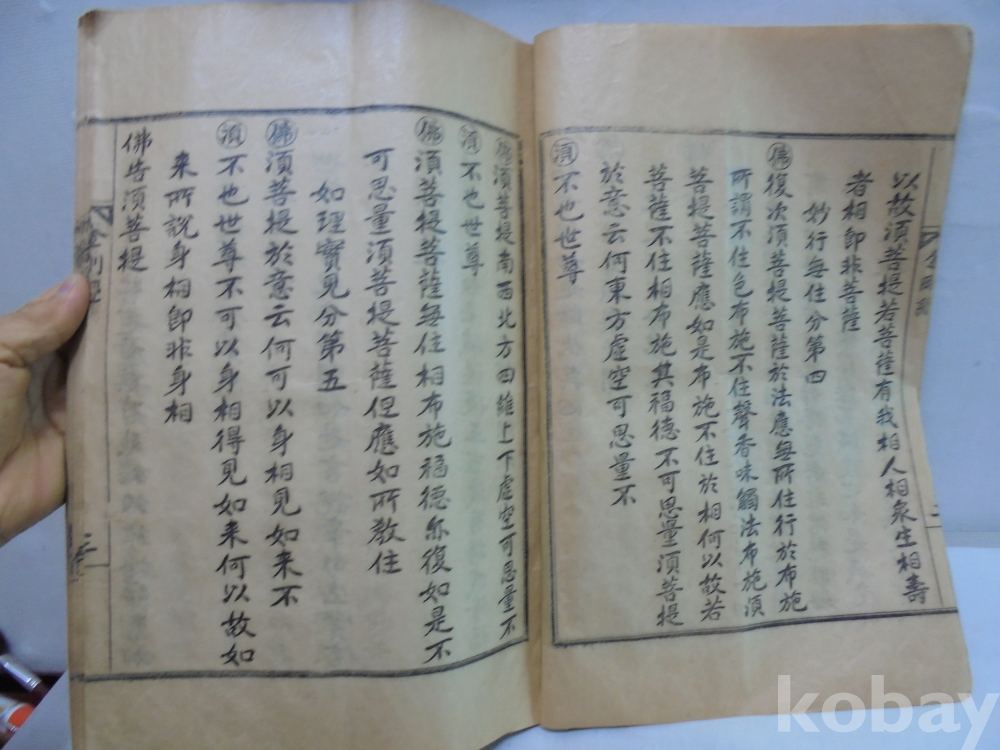 以故須菩提若菩薩有我相人相衆生相壽
者相即非菩薩
妙行無住分第四
佛 復次須菩提菩薩於法應無所住行於布施
所謂不住色布施不住聲香味觸法布施須
菩提菩薩應如是布施不住於相何以故若
菩薩不住相布施其福德不可思量須菩提
於意云何東方虛空可思量不
須 不也世尊
佛 須菩提南西北方四維上下虛空可思量不
須 不也世尊
佛 須菩提菩薩無住相布施福德亦復如是不
可思量須菩提菩薩但應如所教住
如理實見分第五
佛 須菩提於意云何可以身相見如來不
須 不也世尊不可以身相得見如来何以故如
来所說身相即非身相
佛告須菩提
三
kobay